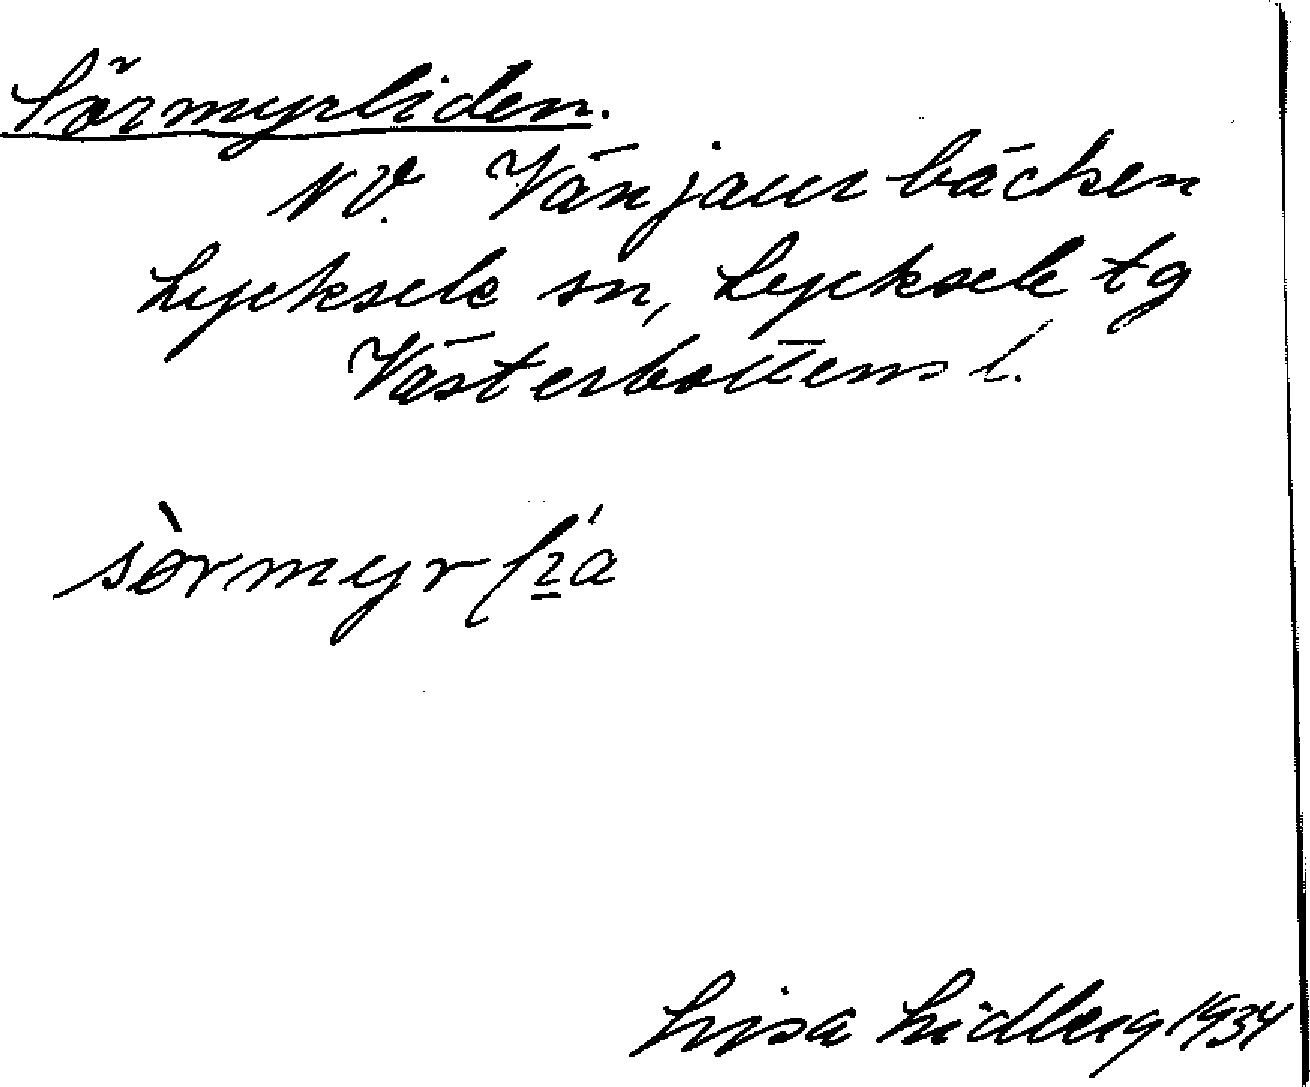 Sörmyrliden.
NV. Vänjaurbäcken
Lycksele sn, Lycksele tg
Västerbottens l.
Lisa Lidberg 1934